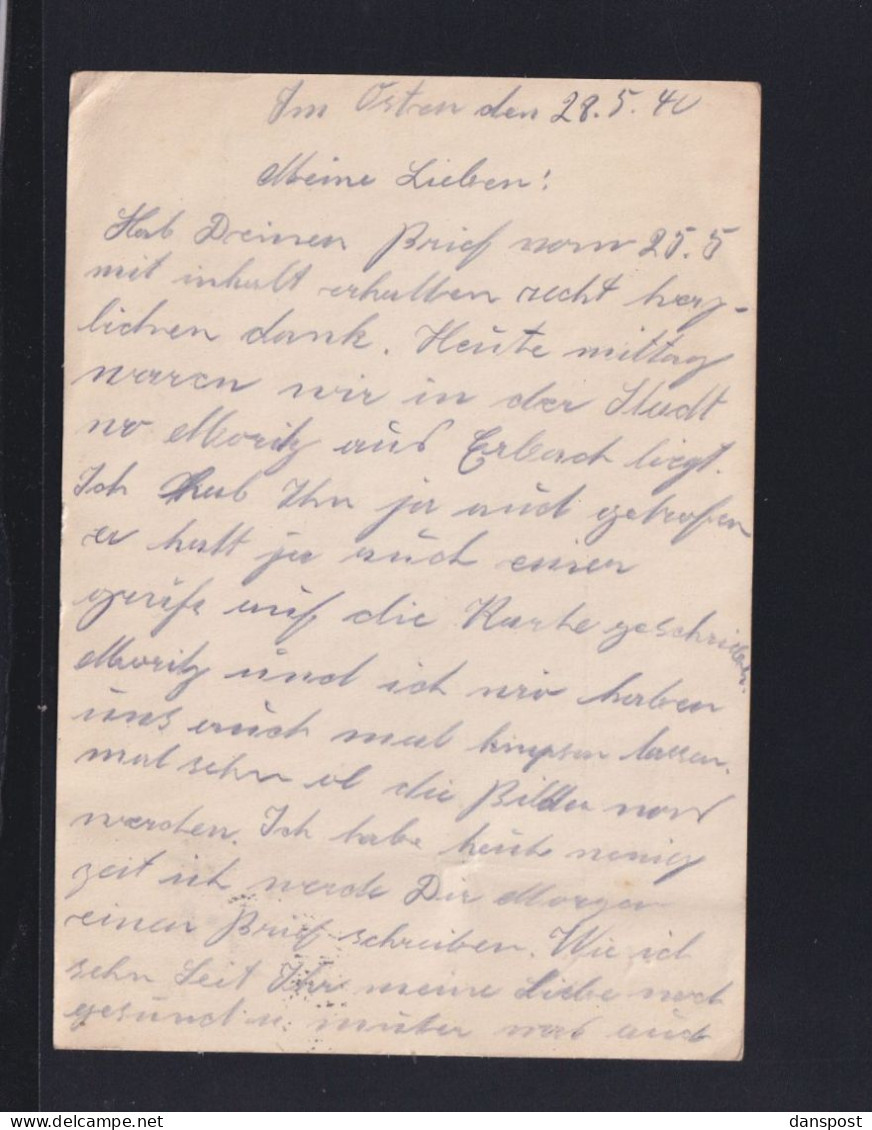 Im Osten den 28.5.40
Meine Lieben!
Hab Deinen Brief vom 25.5
mit inhalt erhalten recht herz-
lichen dank. Heute mittag
waren wir in der Stadt
wo Moritz aus Erbach liegt.
Ich hab Ihn ja auch getrofen
er hatt ja auch einen
grüße auf die Karte geschrieben.
Moritz und ich wir haben
uns auch mal knipsen lassen.
mal sehn ob die Bilder was
werden. Ich habe heute wenig
zeit ich werde Dir Morgen
einen Brief schreiben. Wie ich
sehn Seit Ihr meine Liebe noch
gesund u. munter was auch
danspost